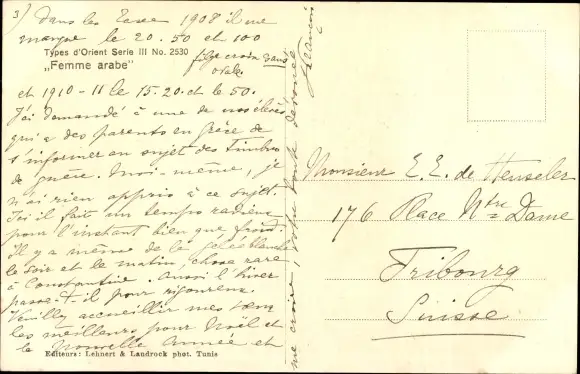 3) Dans les Taxe 1908 il me
manque le 20. 50 et 100
Types d'Orient Serie III No. 2530
„Femme arabe"
filg croix dans
ovale.
et 1910-11 le 15. 20. et le 50.
J'ai demandé à une de nos élèves
qui a des parents en grèce de
s'informer au sujet des timbres
de guerre. Moi-même, je
n'ai rien appris à ce sujet.
Ici il fait un temps radieux
pour l'instant bien que froid.
Il y a même de la gelée blanche
le soir et le matin, chose rare
à Constantine. Aussi l'hiver
passe-t-il pour rigoureux.
Veuillez accueillir mes vœux
les meilleurs pour Noël et
la Nouvelle Année et
Editeurs: Lehnert & Landrock phot. Tunis
me croire, votre toute dévouée
Monsieur E. E. de Henseler
176 Place Ntre Dame
Fribourg
Suisse